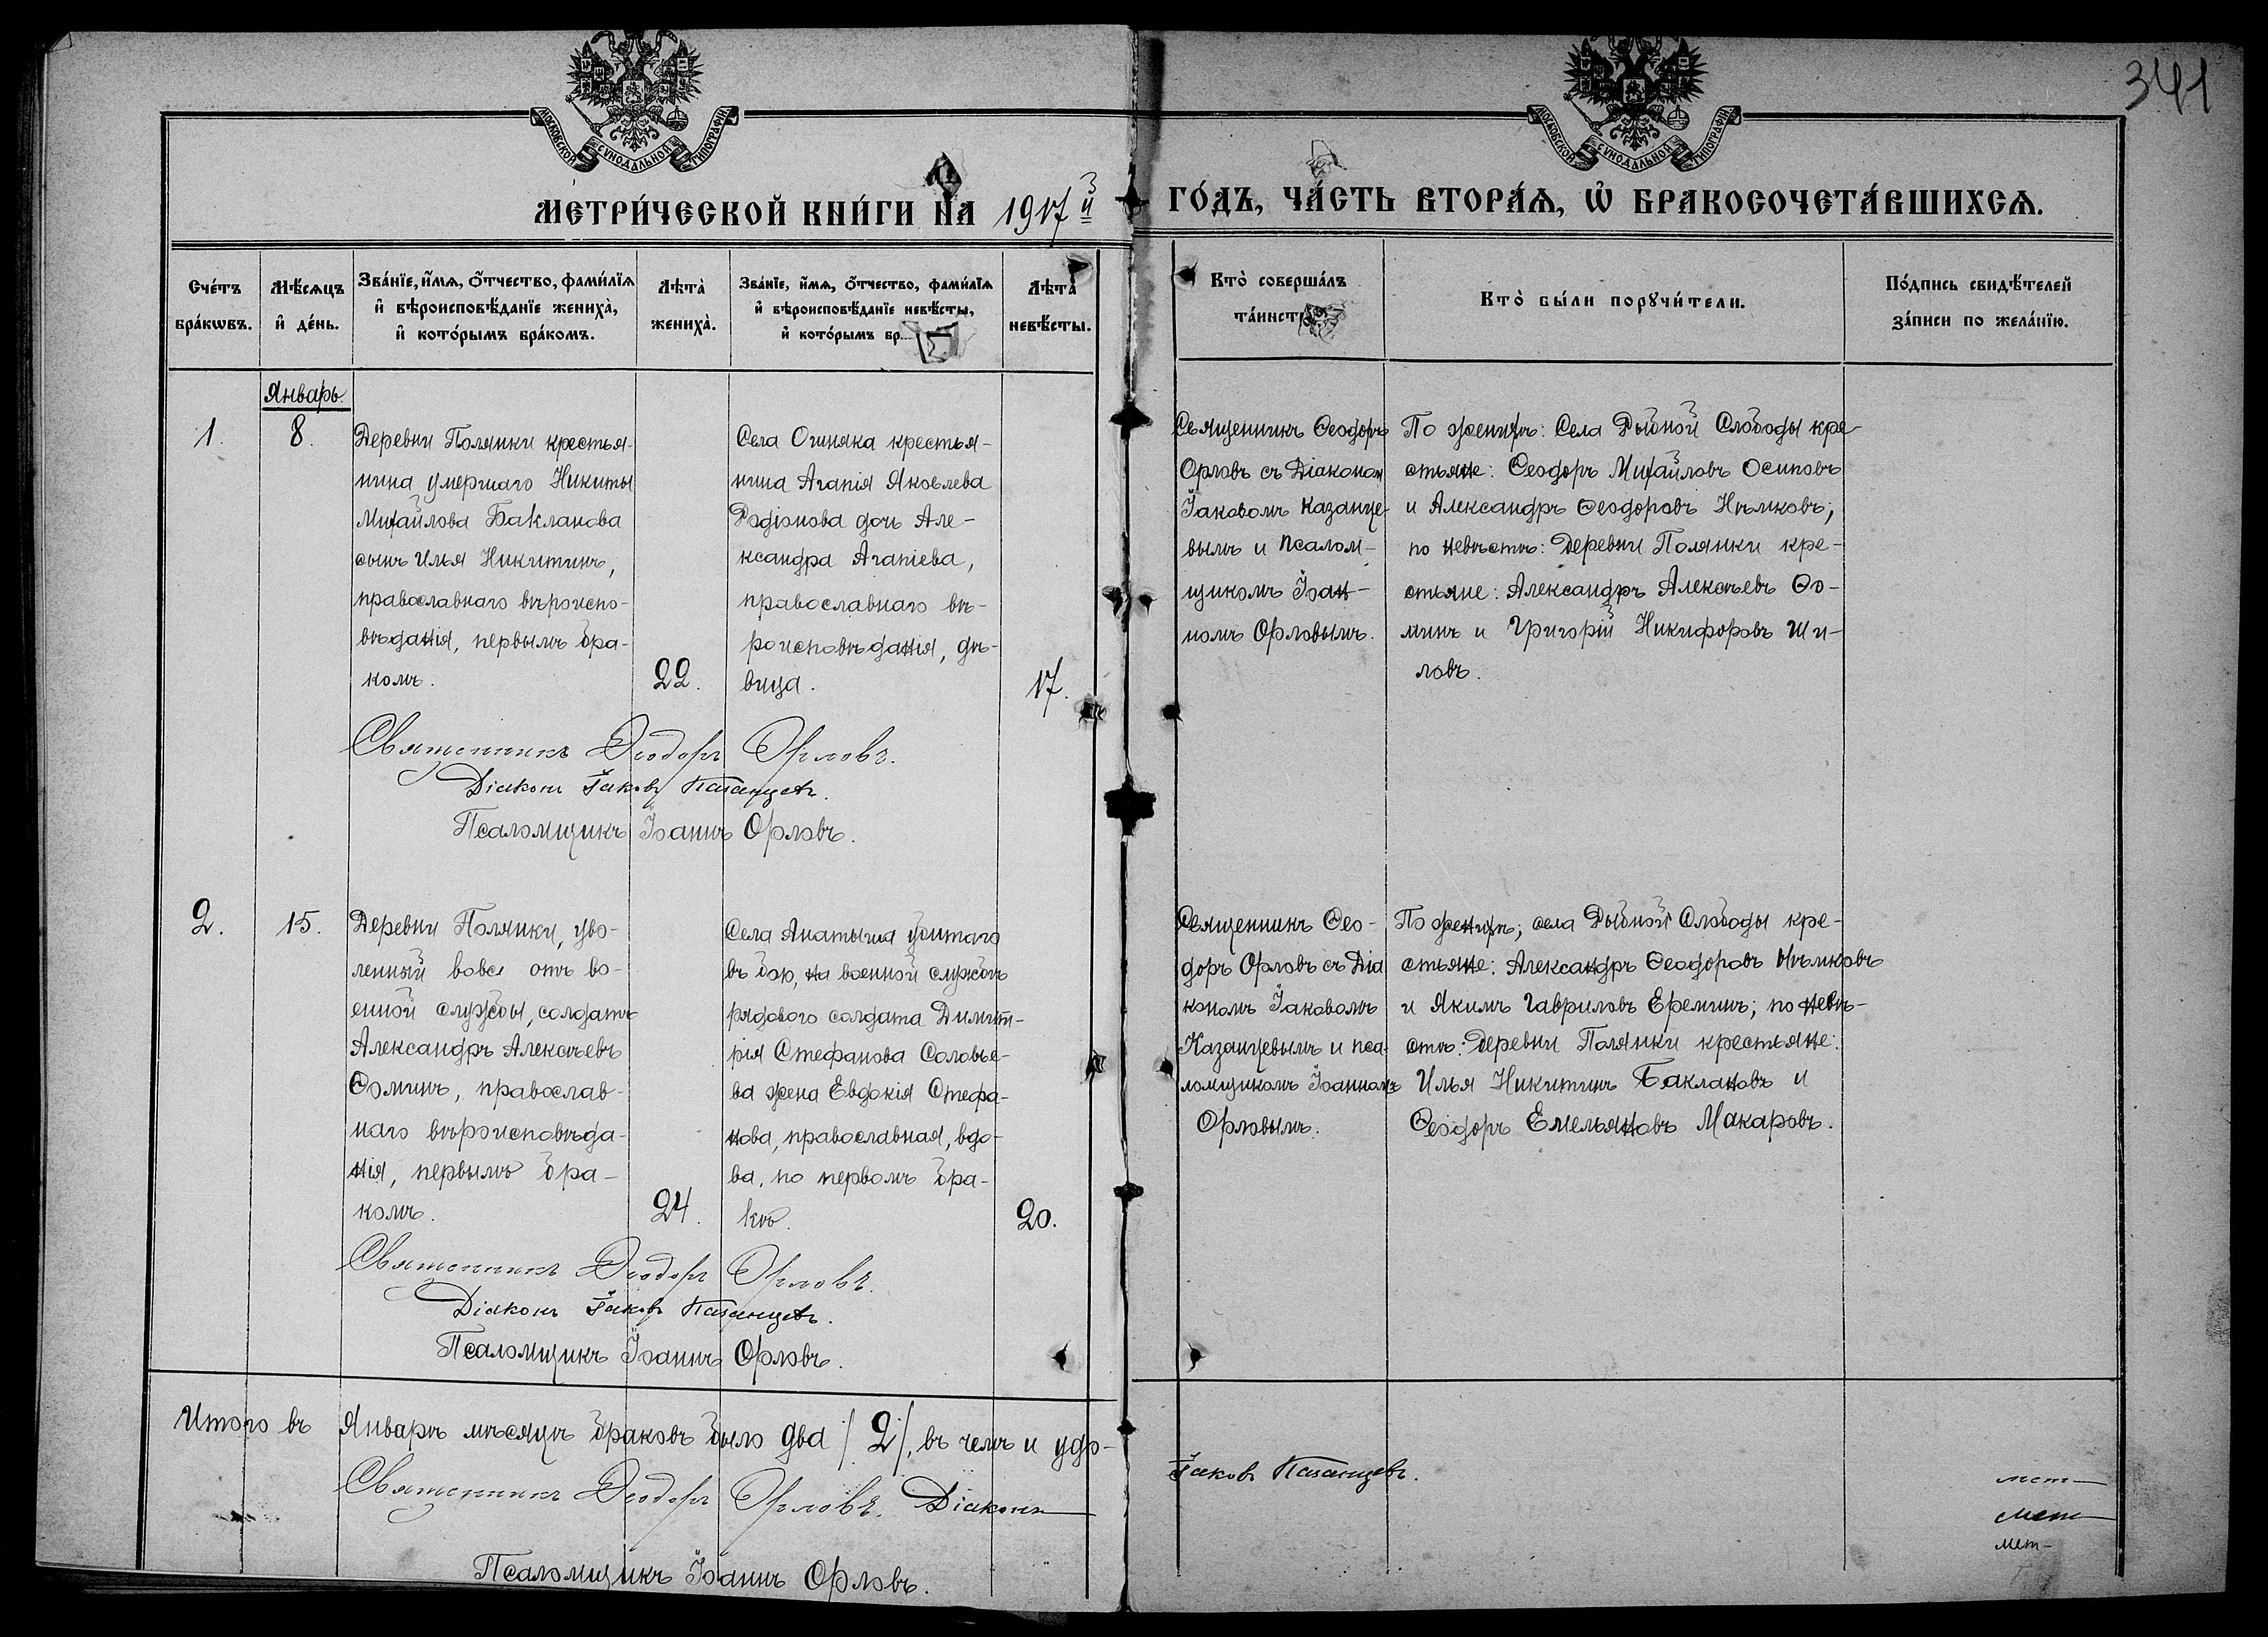 341
МОСКОВСКОЙ СѴНОДАЛЬНОЙ ТИПОГРАФІИ
МОСКОВСКОЙ СѴНОДАЛЬНОЙ ТИПОГРАФІИ
МЕТРИ́ЧЕСКОЙ КНИ́ГИ НА 1917й ГО́ДЪ, ЧА́СТЬ ВТОРА́Я, Ѡ БРАКОСОЧЕТА́ВШИХСЯ.
Сче́тъ
бра́кѡвъ.
Мѣ́сяцъ
и де́нь.
Зва́нїе, и́мя, ѻ́тчество, фами́лїя
и вѣроисповѣ́данїе жениха̀,
и кото́рымъ бра́комъ.
Лѣта̀
жениха̀.
Зва́нїе, и́мя, ѻ́тчество, фами́лїя
и вѣроисповѣ́данїе невѣ́сты,
и кото́рымъ бр
Лѣта̀
невѣ́сты.
Кто̀ соверша́лъ
та́инст
Кто̀ бы́ли порꙋчи́тели.
По́дпись свидѣ́телей
за́писи по жела́нїю.
Январь.
1.
8.
Деревни Полянки крестья-
нина умершаго Никиты
Михайлова Бакланова
сынъ Илья Никитинъ,
православнаго вѣроиспо-
вѣданія, первымъ бра-
комъ.
22.
Села Ошняка крестья-
нина Агапія Яковлева
Родіонова дочь Але-
ксандра Агапіева,
православнаго вѣ-
роисповѣданія, дѣ-
вица.
17.
Священникъ Ѳеодоръ
Орловъ съ Діаконом
Іаковомъ Казанце-
вымъ и псалом-
щикомъ Іоан-
номъ Орловымъ.
По женихѣ: Села Рыбной Слободы кре-
стьяне: Ѳеодоръ Михайловъ Осиповъ
и Александръ Ѳеодоровъ Нѣмковъ;
по невѣстѣ: Деревни Полянки кре-
стьяне: Александръ Алексѣевъ Ѳо-
минъ и Григорій Никифоровъ Ши-
ловъ.
Священникъ Ѳеодоръ Орловъ.
Діаконъ Іаковъ Казанцевъ.
Псаломщикъ Іоаннъ Орловъ.
2.
15.
Деревни Полянки, уво-
ленный вовсе отъ во-
енной службы, солдатъ
Александръ Алексѣевъ
Ѳоминъ, православ-
наго вѣроисповѣда-
нія, первымъ бра-
комъ.
24.
Села Анатыша убитаго
въ бою, на военной службѣ
рядового солдата Димит-
рія Стефанова Соловье-
ва жена Евдокія Стефа-
нова, православная, вдо-
ва, по первомъ бра-
кѣ.
20.
Священникъ Ѳео-
доръ Орловъ съ Діа
кономъ Іаковомъ
Казанцевымъ и пса-
ломщикомъ Іоанномъ
Орловымъ.
По женихѣ; села Рыбной Слободы кре-
стьяне: Александръ Ѳеодоровъ Нѣмковъ
и Якимъ Гавриловъ Ереминъ; по невѣ-
стѣ: Деревни Полянки крестьяне:
Илья Никитинъ Баклановъ и
Ѳеодоръ Емельяновъ Макаровъ.
Священникъ Ѳеодоръ Орловъ.
Діаконъ Іаковъ Казанцевъ.
Псаломщикъ Іоаннъ Орловъ.
Итого въ Январѣ мѣсяцѣ браковъ было два /2/, въ чемъ и удо-
Священникъ Ѳеодоръ Орловъ. Діаконъ
Іаковъ Казанцевъ.
Псаломщикъ Іоаннъ Орловъ.